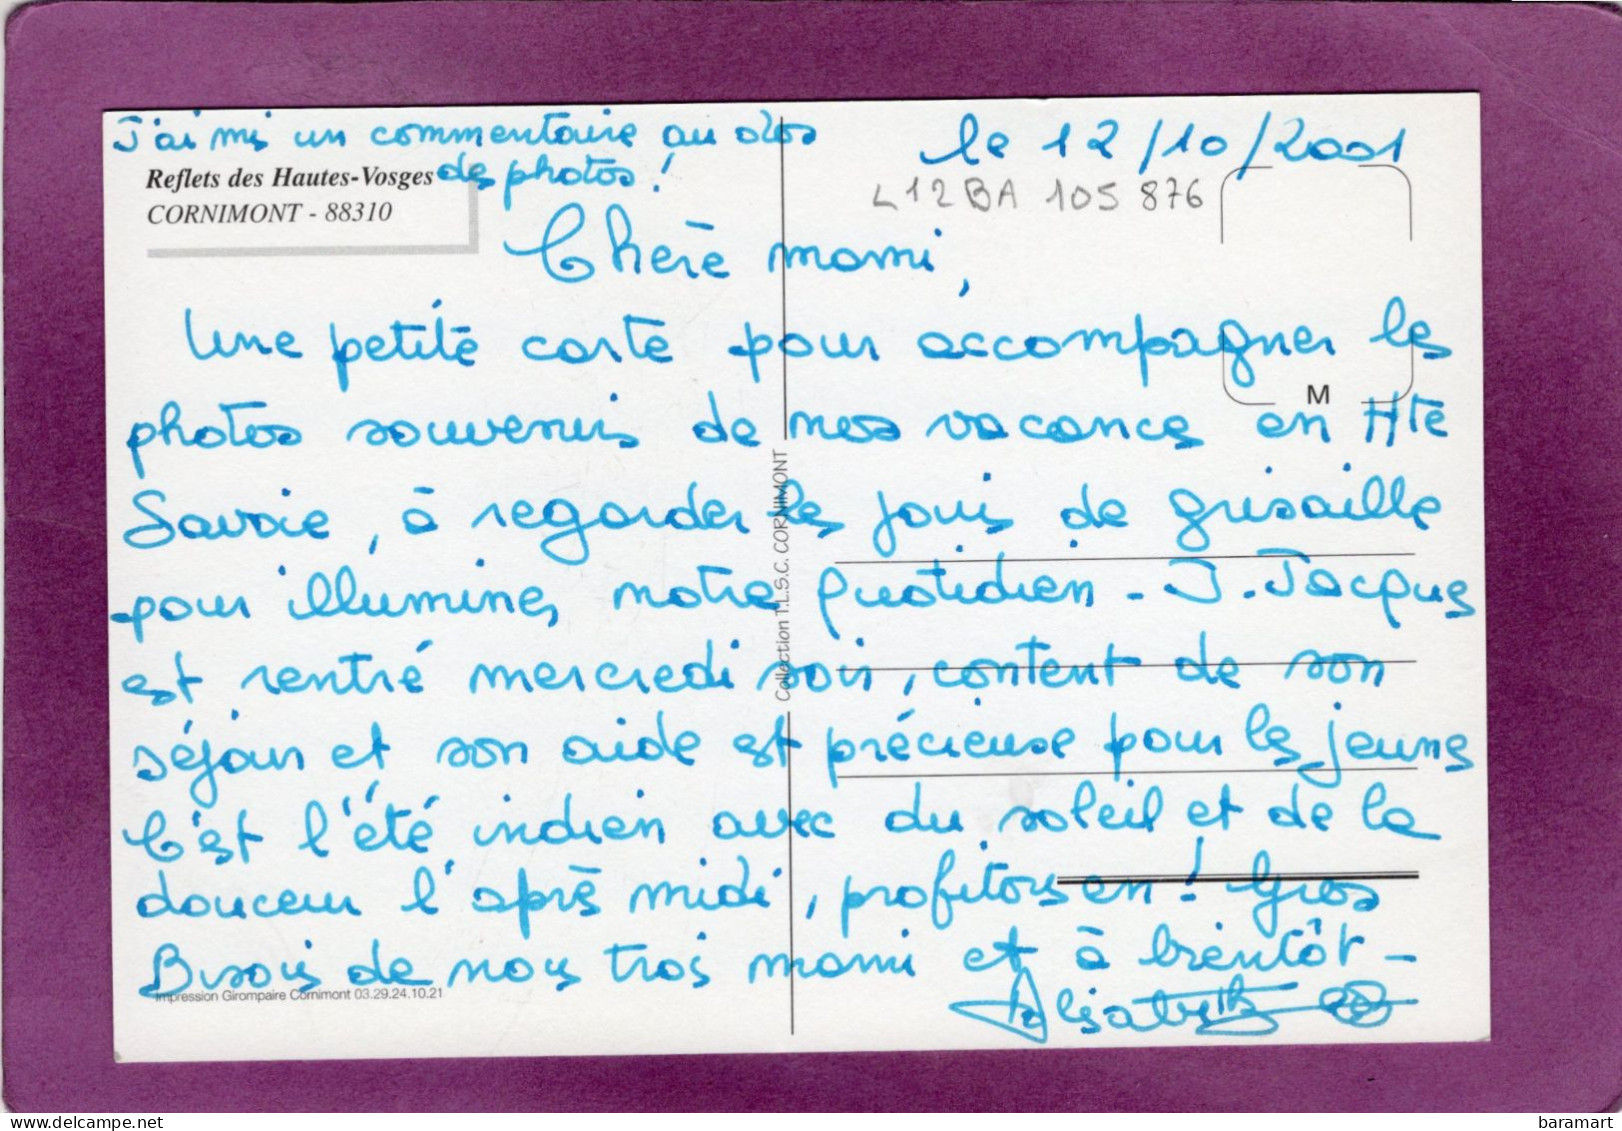 J'ai mis un commentaire au dos
de photos !
Reflets des Hautes-Vosges
CORNIMONT - 88310
le 12/10/2001
L12BA 105 876
Chère mami,
Une petite carte pour accompagner les
M
photos souvenirs de nos vacances en Hte
Savoie, à regarder les jours de grisaille
pour illuminer notre quotidien - J. Jacques
est rentré mercredi soir, content de son
séjour et son aide est précieuse pour les jeunes
C'est l'été indien avec du soleil et de la
douceur l'après midi, profitons en ! Gros
Bisous de nous trois mami et à bientôt -
Collection T.L.S.C. CORNIMONT
Impression Girompaire Cornimont 03.29.24.10.21
baramart